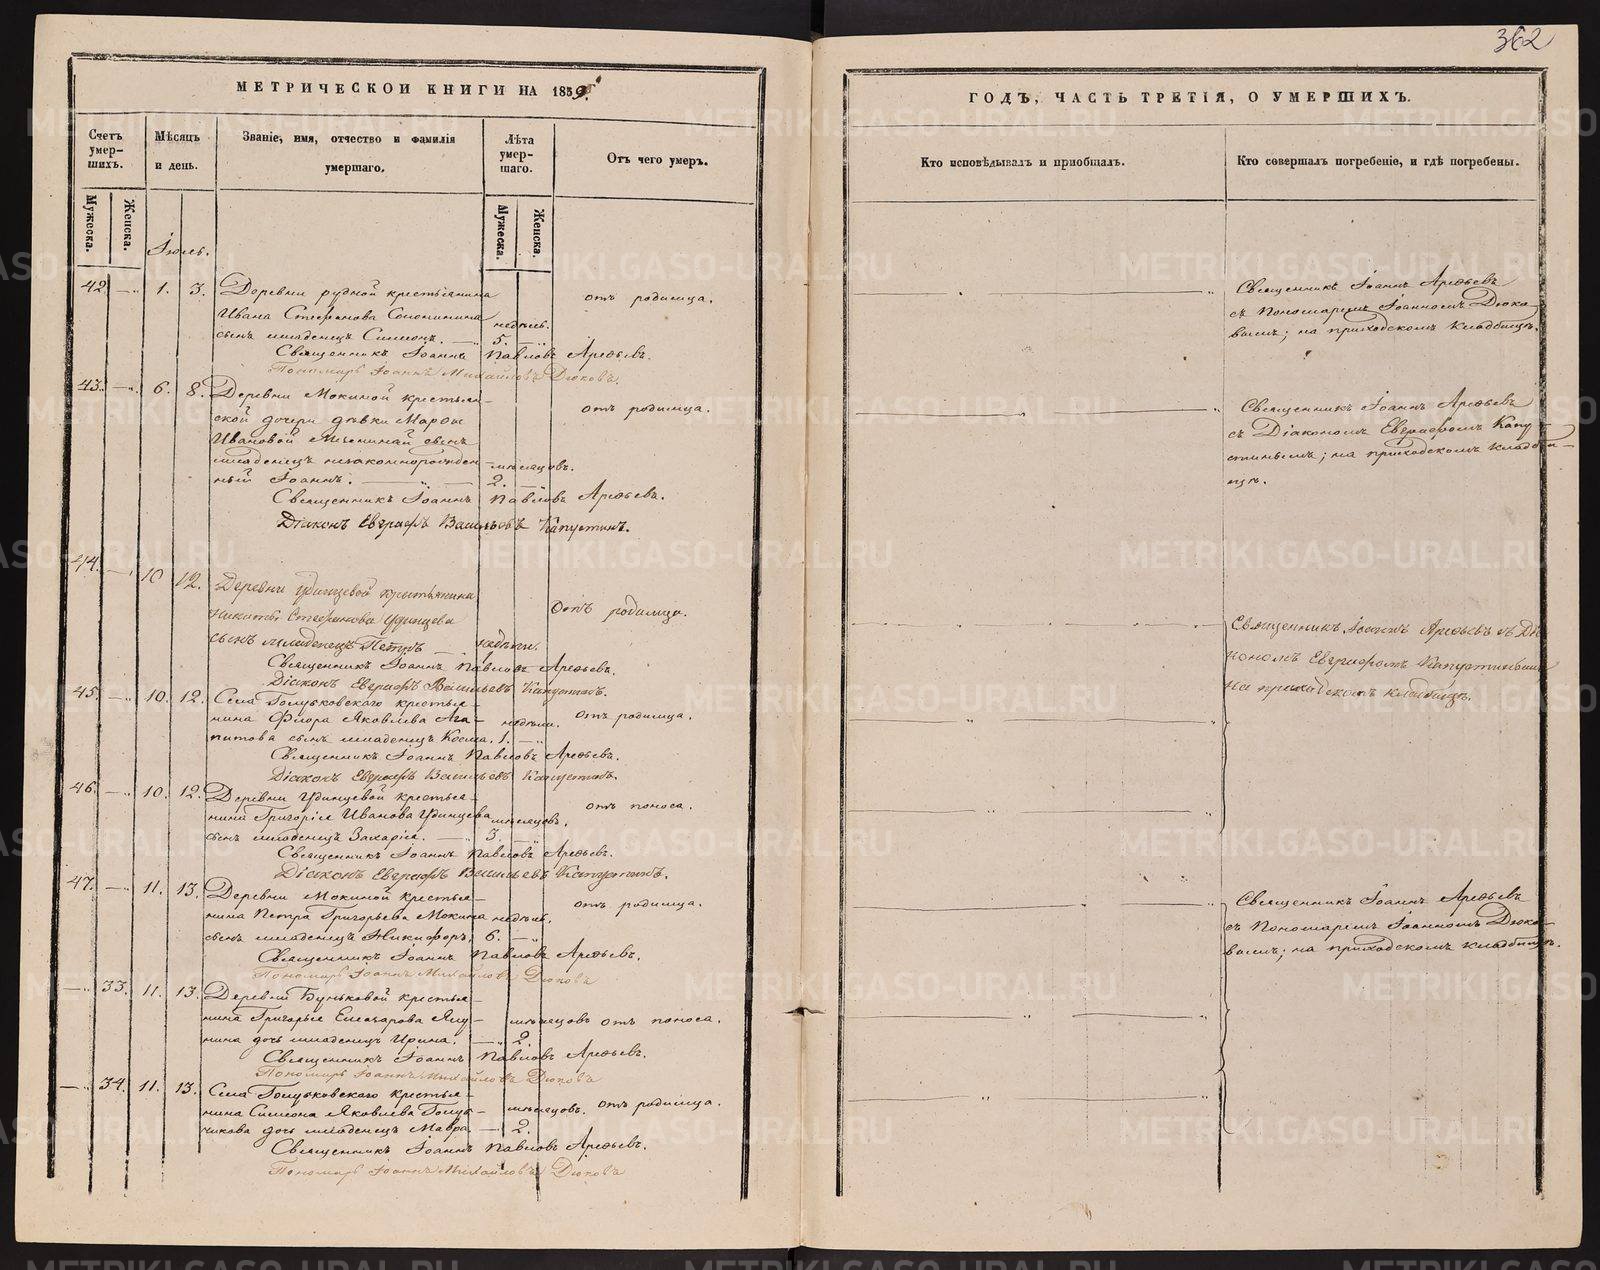 362
МЕТРИЧЕСКОЙ КНИГИ НА 1859.
Счетъ умер-шихъ.
Мужеска.
Женска.
Мѣсяцъ и день.
Званіе, имя, отчество и фамилія умершаго.
Лѣта умер-шаго.
Мужеска.
Женска.
Отъ чего умеръ.
Іюль.
42. 1. 3. Деревни рудной крестьянина
Ивана Стефанова
сынъ младенецъ Симеонъ. недѣль. 5. отъ родимца.
Священникъ Іоаннъ Павловъ Арефьевъ.
Пономарь Іоаннъ Михайловъ Дюковъ.
43. 6. 8. Деревни Мокиной крестьян-
ской дочери дѣвки Марѳы
Ивановой сынъ
младенецъ незаконнорожден-
ный Іоаннъ. мѣсяцовъ. 2. отъ родимца.
Священникъ Іоаннъ Павловъ Арефьевъ.
Діаконъ Евграфъ Васильевъ Капустинъ.
44. 10 12. Деревни Удинцевой крестьянина
Никиты Стефанова Удинцева
сынъ младенецъ Петръ недѣли. Отъ родимца.
Священникъ Іоаннъ Павловъ Арефьевъ.
Діаконъ Евграфъ Васильевъ Капустинъ.
45. 10. 12. Села Голубковскаго крестья-
нина Флора Яковлева Ага-
питова сынъ младенецъ Косма. недѣли. 1. Отъ родимца.
Священникъ Іоаннъ Павловъ Арефьевъ.
Діаконъ Евграфъ Васильевъ Капустинъ.
46. 10. 12. Деревни Удинцевой крестья-
нина Григорія Иванова Удинцева
сынъ младенецъ Захарія. мѣсяцовъ. 3. отъ поноса.
Священникъ Іоаннъ Павловъ Арефьевъ.
Діаконъ Евграфъ Васильевъ Капустинъ.
47. 11. 13. Деревни Мокиной крестья-
нина Петра Григорьева Мокина
сынъ младенецъ Никифоръ. недѣль. 6. отъ родимца.
Священникъ Іоаннъ Павловъ Арефьевъ.
Пономарь Іоаннъ Михайловъ Дюковъ
33. 11. 13. Деревни Буньковой крестья-
нина Григорья Елеазарова Яку-
нина дочь младенецъ Ирина. мѣсяцовъ 2. отъ поноса.
Священникъ Іоаннъ Павловъ Арефьевъ.
Пономарь Іоаннъ Михайловъ Дюковъ
34. 11. 13. Села Голубковскаго крестья-
нина Симеона Яковлева Голуб-
чикова дочь младенецъ Мавра. мѣсяцовъ. 2. отъ родимца.
Священникъ Іоаннъ Павловъ Арефьевъ.
Пономарь Іоаннъ Михайловъ Дюковъ
ГОДЪ, ЧАСТЬ ТРЕТІЯ, О УМЕРШИХЪ.
Кто исповѣдывалъ и пріобщалъ.
Кто совершалъ погребеніе, и гдѣ погребены.
Священникъ Іоаннъ Арефьевъ
съ Пономаремъ Іоанномъ Дюко-
вымъ; на приходскомъ кладбищѣ.
Священникъ Іоаннъ Арефьевъ
съ Діакономъ Евграфомъ Капу-
стинымъ; на приходскомъ кладби-
щѣ.
Священникъ Іоаннъ Арефьевъ съ Діа-
кономъ Евграфомъ Капустинымъ
на приходскомъ кладбищѣ.
Священникъ Іоаннъ Арефьевъ
съ Пономаремъ Іоанномъ Дюко-
вымъ; на приходскомъ кладбищѣ.
METRIKI.GASO-URAL.RU